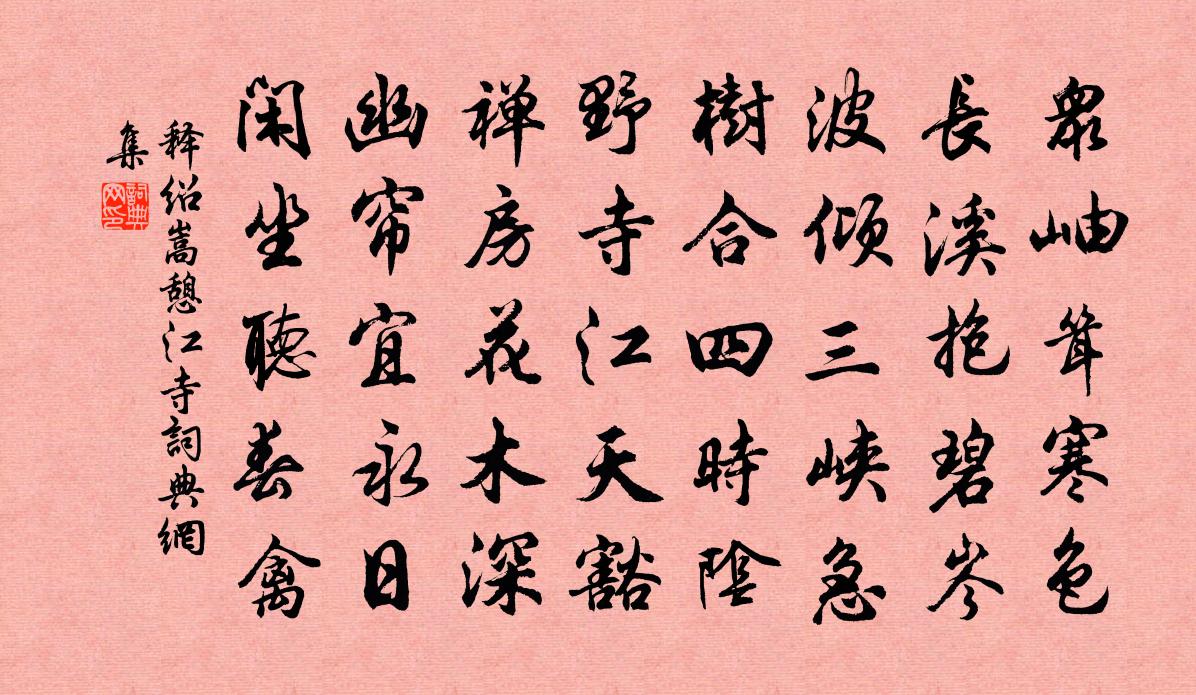 眾岫聳寒色
長溪抱碧岑
波傾三峽急
樹合四時陰
野寺江天豁
禅房花木深
幽帘宜永日
閑坐聽春禽
释紹嵩憩江寺詞典網
集
詞典
网印